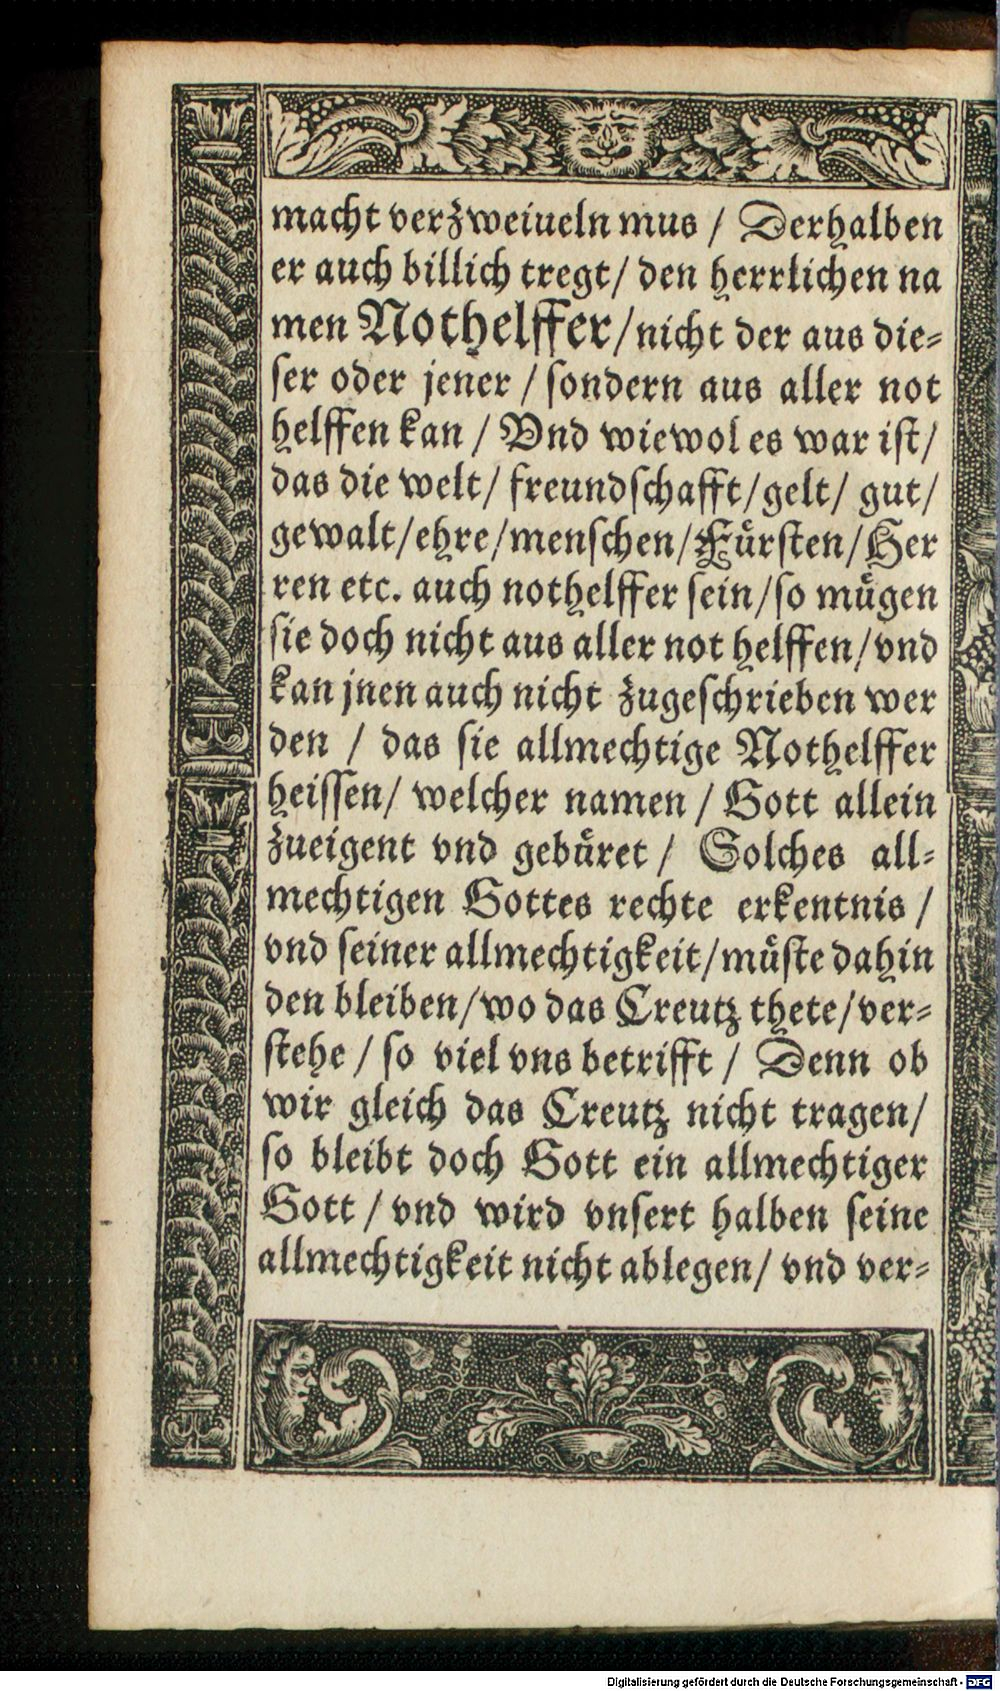 macht verzweiueln mus / Derhalben
er auch billich tregt / den herrlichen na
men Nothelffer / nicht der aus die-
ser oder jener / sondern aus aller not
helffen kan / Vnd wiewol es war ist /
das die welt / freundschafft / gelt / gut /
gewalt / ehre / menschen / Fürsten / Her
ren etc. auch nothelffer sein / so mügen
sie doch nicht aus aller not helffen / vnd
kan jnen auch nicht zugeschrieben wer
den / das sie allmechtige Nothelffer
heissen / welcher namen / Gott allein
zueigent vnd gebüret / Solches all-
mechtigen Gottes rechte erkentnis /
vnd seiner allmechtigkeit / müste dahin
den bleiben / wo das Creutz thete / ver-
stehe / so viel vns betrifft / Denn ob
wir gleich das Creutz nicht tragen /
so bleibt doch Gott ein allmechtiger
Gott / vnd wird vnsert halben seine
allmechtigkeit nicht ablegen / vnd ver-
Digitalisierung gefördert durch die Deutsche Forschungsgemeinschaft - DFG